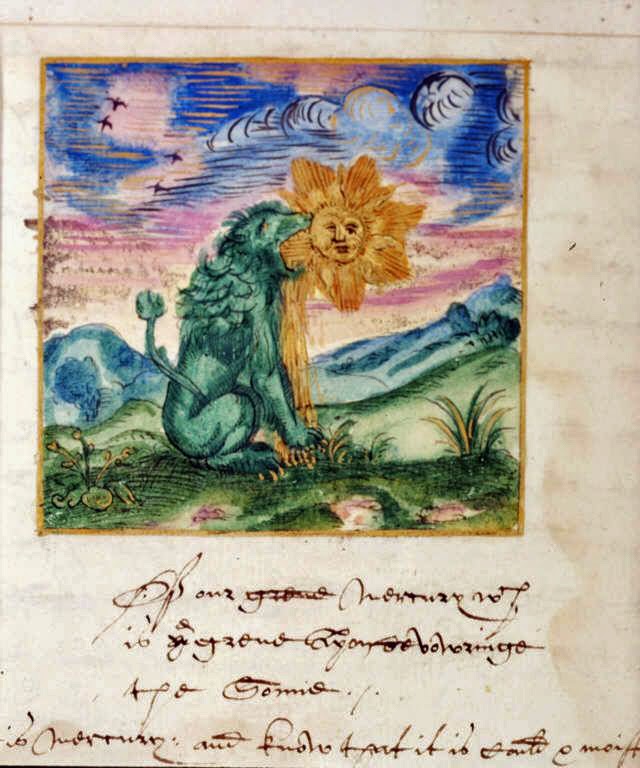 Of our grene Mercury wch
is ye grene Lyon devowringe
the Sonne.
is Mercury: and know that it is could & moist